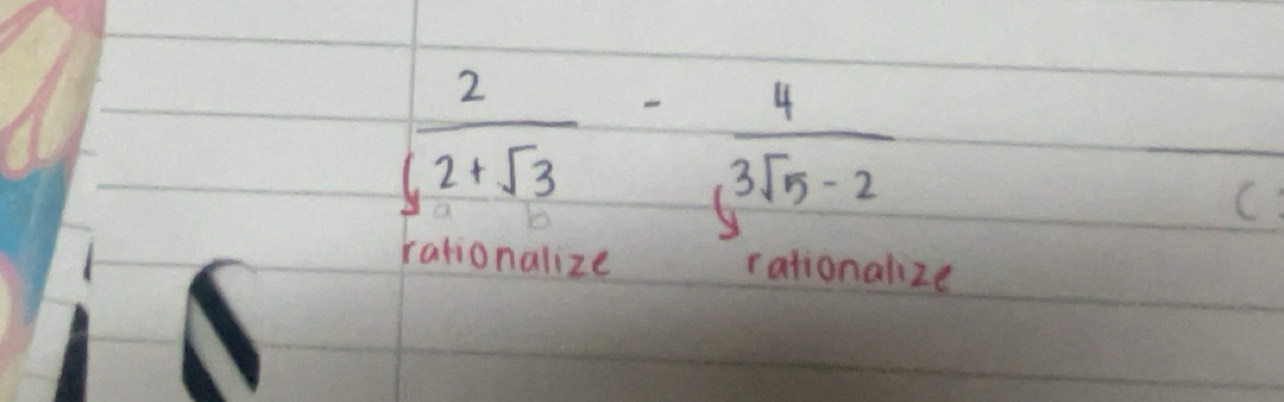 2 - 4
2 + √3 3√5 - 2
a b
rationalize rationalize